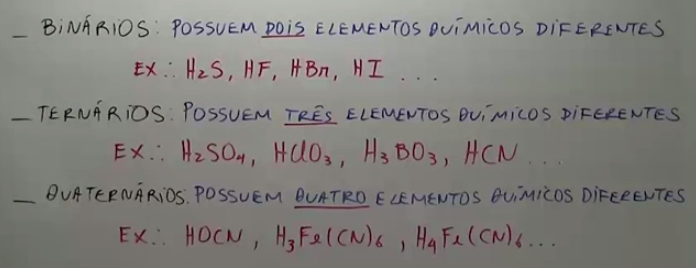 _ BINÁRIOS: POSSUEM DOIS ELEMENTOS QUÍMICOS DIFERENTES
EX.: H2S, HF, HBr, HI ...
_ TERNÁRIOS: POSSUEM TRÊS ELEMENTOS QUÍMICOS DIFERENTES
EX.: H2SO4, HClO3, H3BO3, HCN ...
_ QUATERNÁRIOS: POSSUEM QUATRO ELEMENTOS QUÍMICOS DIFERENTES
EX.: HOCN, H3Fe(CN)6, H4Fe(CN)6...